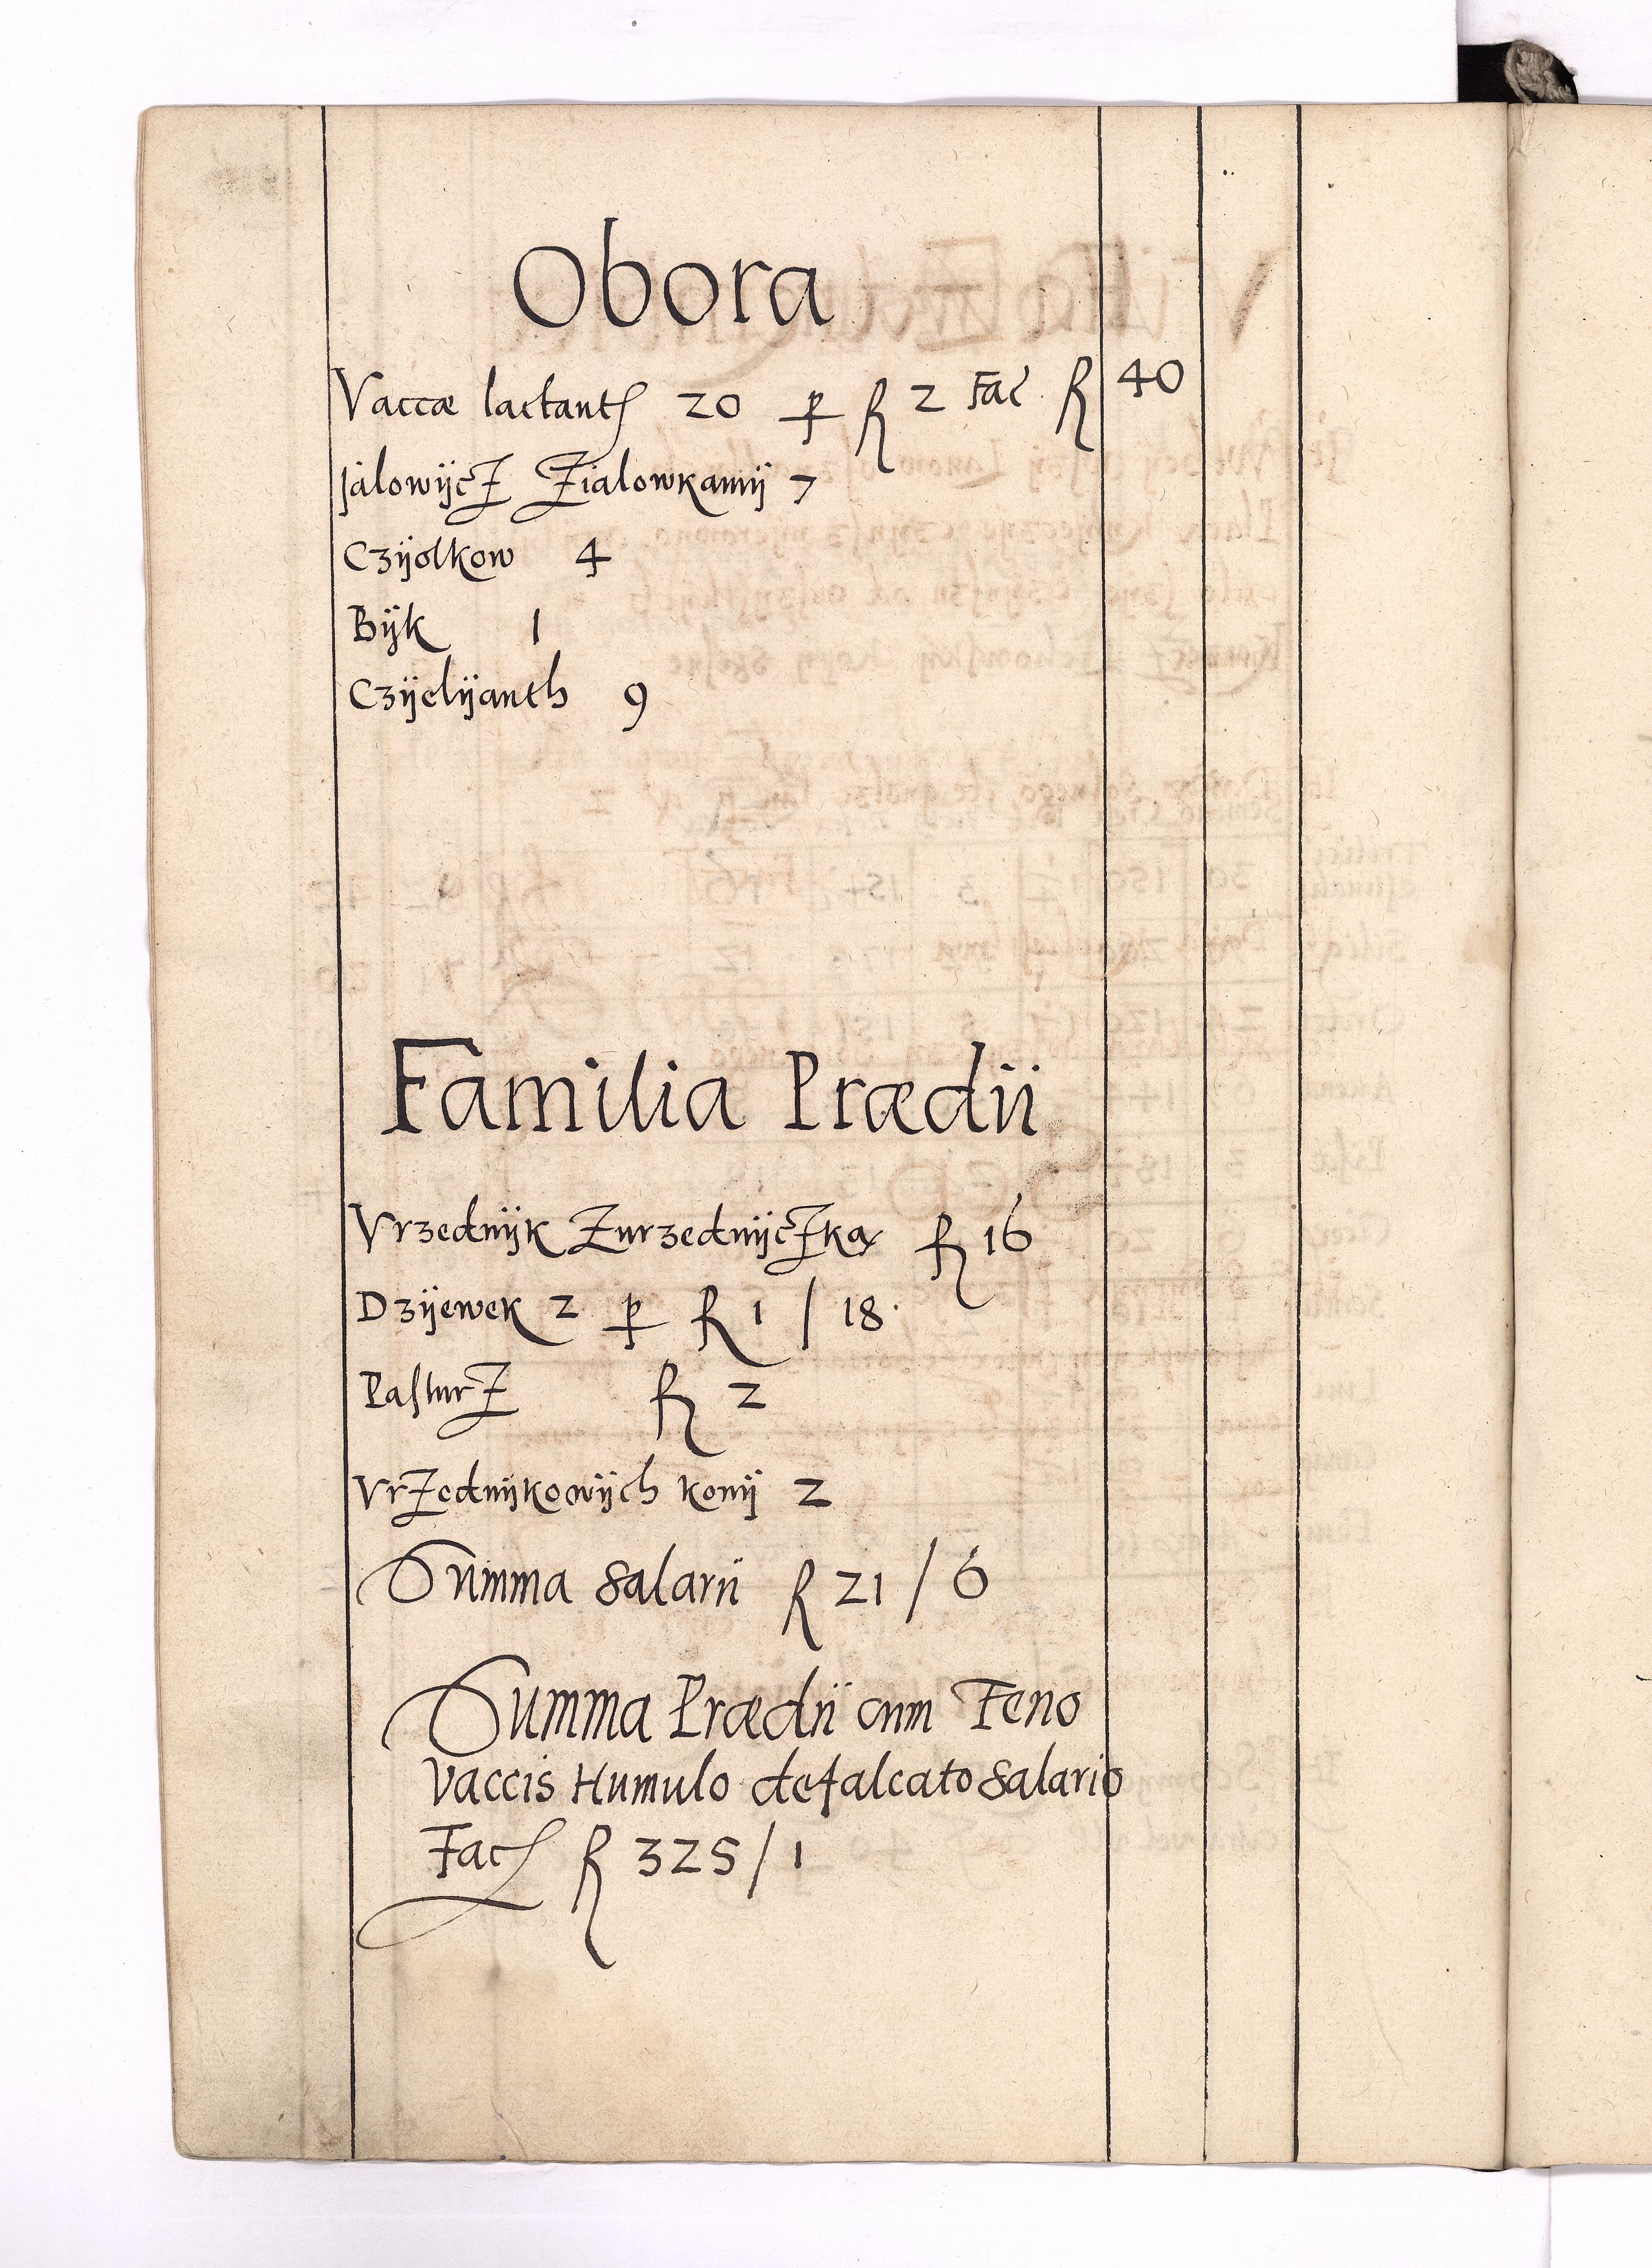 Obora
Vaccæ lactantes 20 p fl 2 Fac fl 40
jalowijcz Zialowkamij 7
Czÿolkow 4
Bÿk 1
Czÿelÿanth 9
Familia Prædii
Vrzednÿk Zurzednÿczka fl 16
Dzÿewek 2 p fl 1 / 18
Pasturz fl 2
Vrzednÿkowÿch konÿ 2
Summa Salarii fl 21 / 6
Summa Prædii cum Feno
Vaccis Humulo defalcato Salario
Fac fl 325 / 1